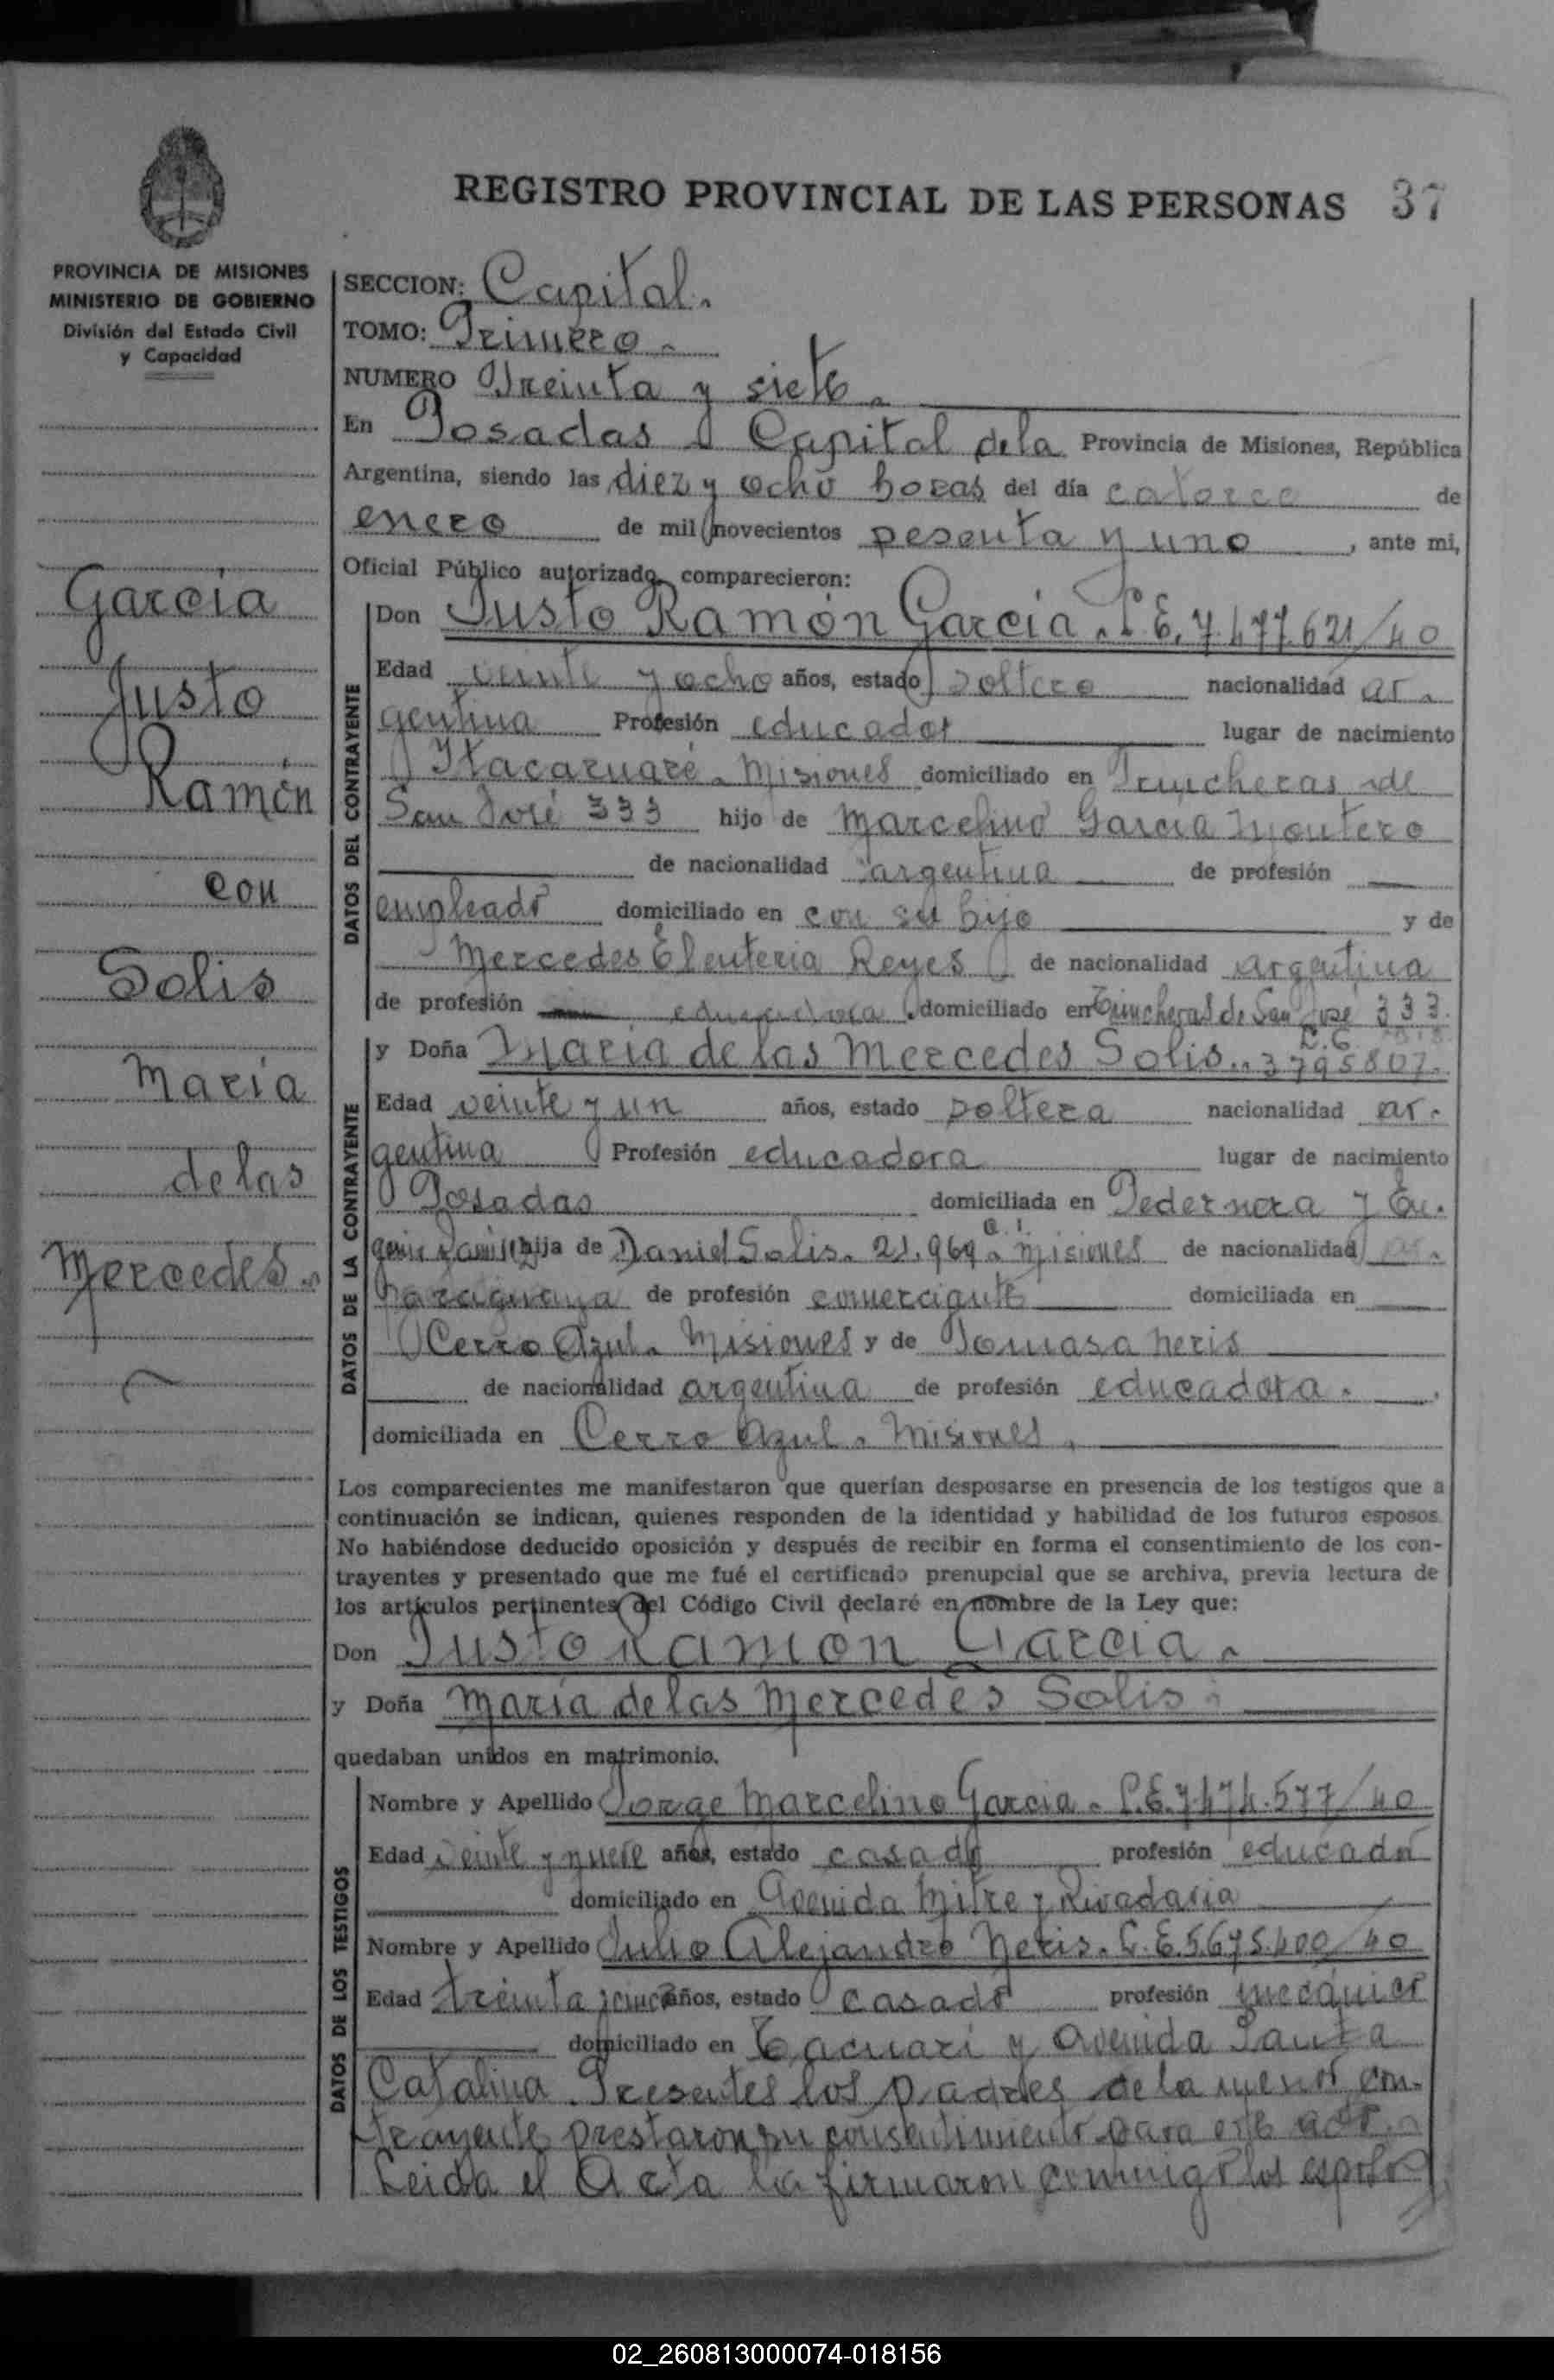 REGISTRO PROVINCIAL DE LAS PERSONAS 37
PROVINCIA DE MISIONES
MINISTERIO DE GOBIERNO
División del Estado Civil
y Capacidad
García
Justo
Ramón
con
Solis
María
de las
Mercedes.
SECCION: Capital.
TOMO: Primero.
NUMERO Treinta y siete.
En Posadas Capital de la Provincia de Misiones, República
Argentina, siendo las diez y ocho horas del día catorce de
enero de mil novecientos sesenta y uno, ante mi,
Oficial Público autorizado, comparecieron:
DATOS DEL CONTRAYENTE
Don Justo Ramón García. L.E. 7.477.621/40
Edad veinte y ocho años, estado soltero nacionalidad ar.
gentina Profesión educador lugar de nacimiento
Itacaruaré. Misiones domiciliado en Trincheras de
San José 333 hijo de Marcelino García Montero
de nacionalidad argentina de profesión
empleado domiciliado en con su hijo y de
Mercedes Eleuteria Reyes de nacionalidad argentina
de profesión educadora domiciliado en Trincheras de San José 333.
DATOS DE LA CONTRAYENTE
y Doña María de las Mercedes Solis.. L.C. 3795807.
Edad veinte y un años, estado soltera nacionalidad ar.
gentina Profesión educadora lugar de nacimiento
Posadas domiciliada en Pedernera y Eu.
genio Ramirez hija de Daniel Solis. C.I. 21.969. Misiones de nacionalidad
paraguaya de profesión comerciante domiciliada en
Cerro Azul. Misiones y de Tomasa Neris
de nacionalidad argentina de profesión educadora.
domiciliada en Cerro Azul. Misiones.
Los comparecientes me manifestaron que querían desposarse en presencia de los testigos que a
continuación se indican, quienes responden de la identidad y habilidad de los futuros esposos
No habiéndose deducido oposición y después de recibir en forma el consentimiento de los con-
trayentes y presentado que me fué el certificado prenupcial que se archiva, previa lectura de
los artículos pertinentes del Código Civil declaré en nombre de la Ley que:
Don Justo Ramón García.
y Doña María de las Mercedes Solis
quedaban unidos en matrimonio.
DATOS DE LOS TESTIGOS
Nombre y Apellido Jorge Marcelino García. L.E. 7.474.577/40
Edad veinte y nueve años, estado casado profesión educador
domiciliado en Avenida Mitre y Rivadavia
Nombre y Apellido Julio Alejandro Neris. L.E. 5.675.400/40
Edad treinta y cinco años, estado casado profesión mecánico
domiciliado en Tacuarí y Avenida Santa
Catalina. Presentes los padres de la menor con.
trayente prestaron su consentimiento para este acto.
Leida el Acta la firmaron conmigo los esposos
02_260813000074-018156